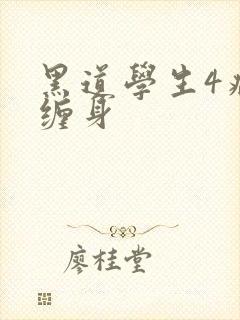 黑道學生4
缠身
廖桂堂